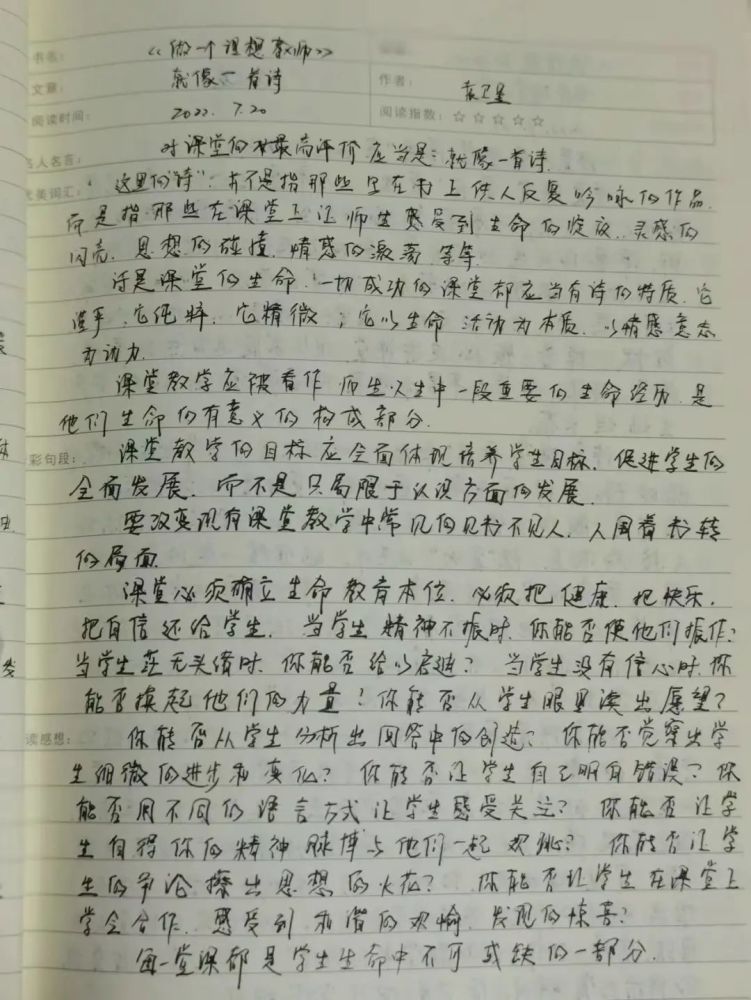 书名: 《做一个理想教师》
文章: 就像一首诗 作者: 袁卫星
阅读时间: 2022. 7.20 阅读指数: ☆☆☆☆☆
名人名言: 对课堂的最高评价应当是:就像一首诗.
优美词汇: "这里的"诗",并不是指那些写在书上供人反复吟咏的作品.
而是指那些在课堂上让师生感受到生命的绽放、灵感的
闪亮、思想的碰撞、情感的激荡等等.
诗是课堂的生命.一切成功的课堂都应当有诗的特质.它
,它纯粹,它精微;它以生命活动为本质.以情感意志
为动力.
课堂教学应被看作师生人生中一段重要的生命经历.是
他们生命的有意义的构成部分.
彩句段: 课堂教学的目标应全面体现培养学生目标.促进学生的
全面发展.而不是只局限于认识方面的发展.
要改变现有课堂教学中常见的见书不见人.人围着书转
的局面.
课堂必须确立生命教育本位.必须把健康.把快乐.
把自信还给学生.当学生精神不振时.你能否使他们振作?
当学生茫无头绪时.你能否给以启迪?当学生没有信心时.你
能否唤起他们的力量?你能否从学生眼里读出愿望?
读感想: 你能否从学生分析出回答中的创造?你能否觉察出学
生细微的进步和变化?你能否让学生自己明白错误?你
能否用不同的语言方式让学生感受关注?你能否让学
生自得你的精神脉搏与他们一起欢跳?你能否让学
生的争论擦出思想的火花?你能否让学生在课堂上
学会合作.感受到和谐的欢愉、发现的惊喜?
每一堂课都是学生生命中不可或缺的一部分.